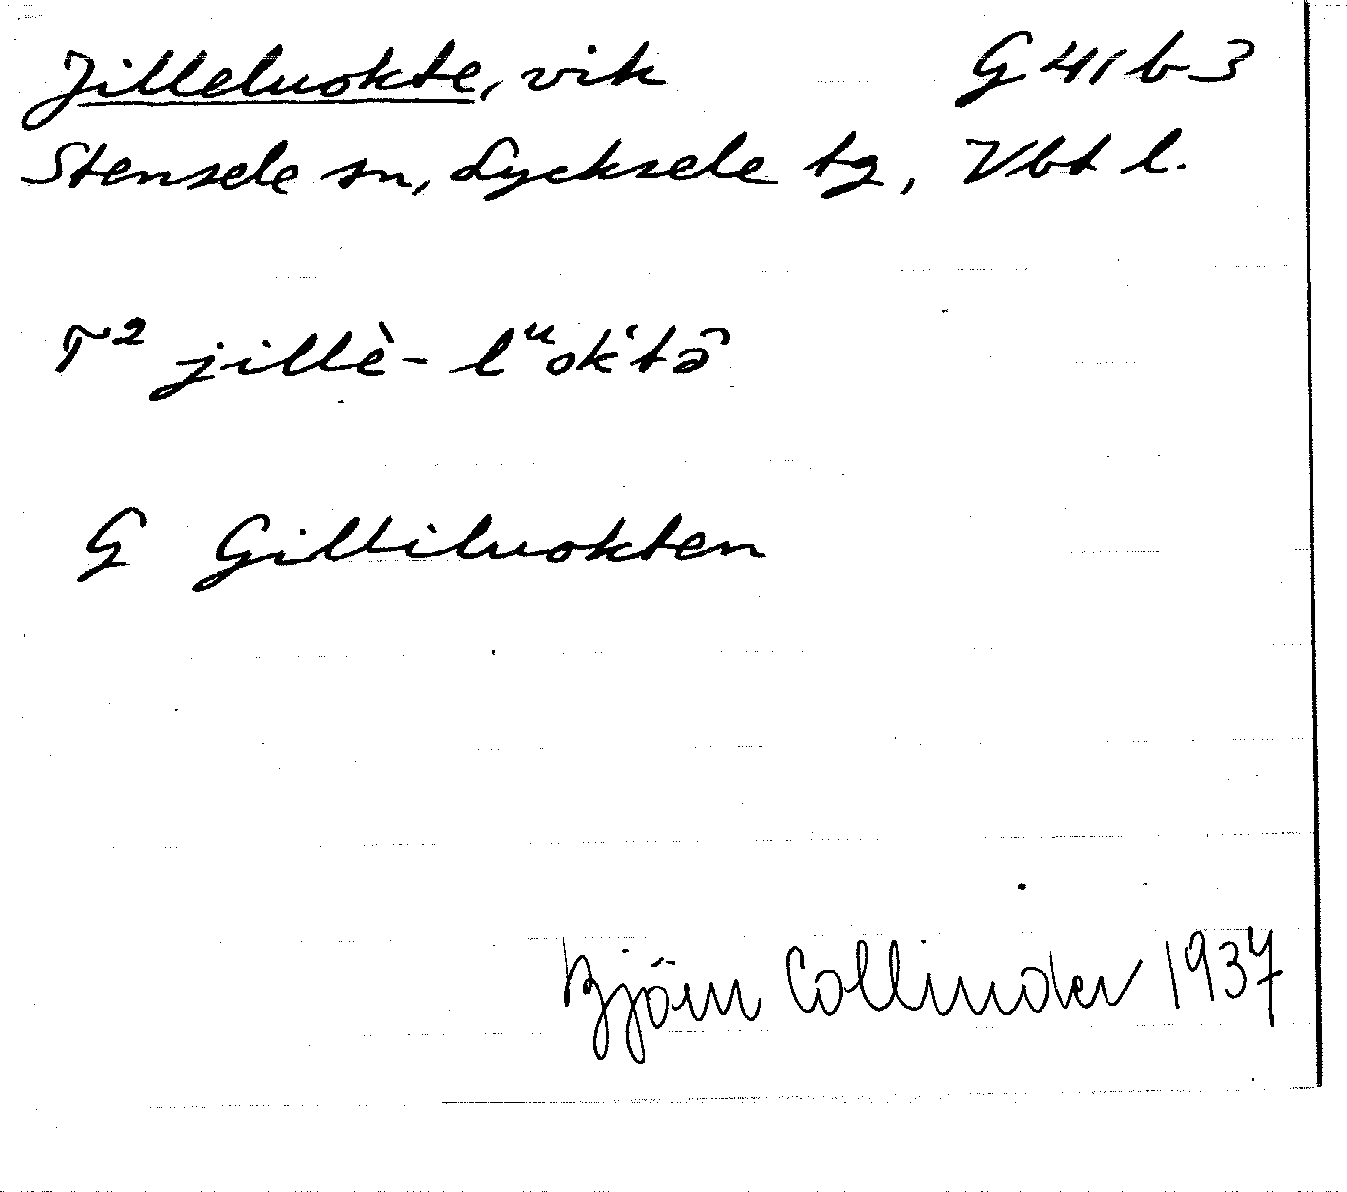 Jilleluokte, vik G 41 b 3
Stensele sn, Lycksele tg, Vbt l.
T² jillè- lᵘok‘tə̑
G Gilliluokten
Björn Collinder 1937